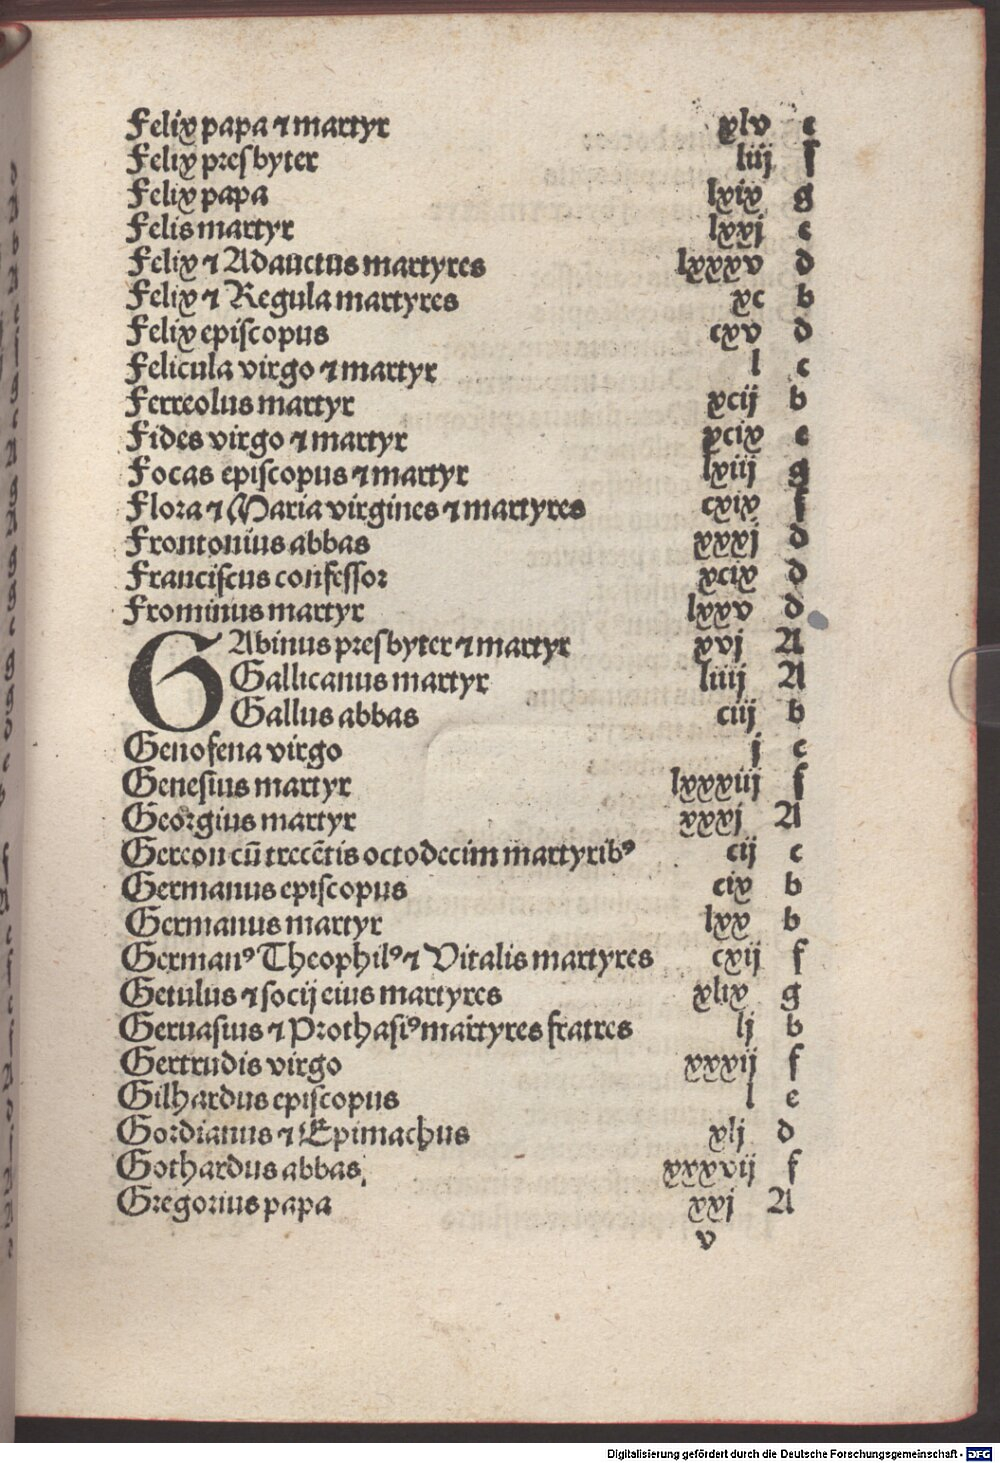 Felix papa ⁊ martyr xlv e
Felix presbyter liij f
Felix papa lxix g
Felis martyr lxxj e
Felix ⁊ Adauctus martyres lxxxv d
Felix ⁊ Regula martyres xc b
Felix episcopus cxv d
Felicula virgo ⁊ martyr l c
Ferreolus martyr xcij b
Fides virgo ⁊ martyr xcix e
Focas episcopus ⁊ martyr lxiij g
Flora ⁊ Maria virgines ⁊ martyres cxix f
Frontonius abbas xxxj d
Franciscus confessor xcix d
Frominus martyr lxxv d
GAbinus presbyter ⁊ martyr xvj A
Gallicanus martyr liiij A
Gallus abbas ciij b
Genofena virgo j c
Genesius martyr lxxxiij f
Georgius martyr xxxj A
Gereon cū trecētis octodecim martyribꝰ cij c
Germanus episcopus cix b
Germanus martyr lxx b
Germanꝰ Theophilꝰ ⁊ Vitalis martyres cxij f
Getulus ⁊ socij eius martyres xlix g
Geruasius ⁊ Prothasiꝰ martyres fratres lj b
Gertrudis virgo xxxij f
Gilhardus episcopus l e
Gordianus ⁊ Epimachus xlj d
Gothardus abbas xxxvij f
Gregorius papa xxj A
v
Digitalisierung gefördert durch die Deutsche Forschungsgemeinschaft - DFG